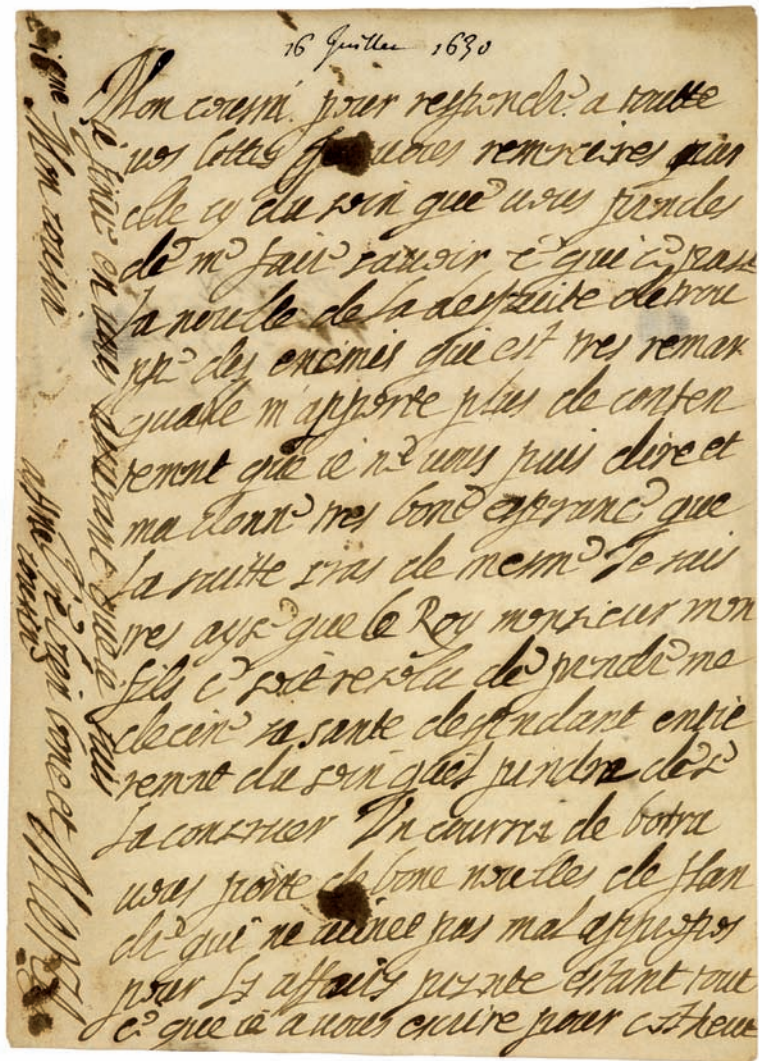 16 Juillet 1630
Mon cousin pour respondre a toutte
vos lettres je vous remercires par
cele cy du soin que vous prendes
de me faire savoir ce qui ce passe
la nouelle de la desfaite de trou
ppe des enemis qui est tres remar
quable m'apporte plus de conten
temnt que ie ne vous puis dire et
ma donne tres bone esperance que
la suitte sras de mesme Je suis
tres ayse que le Roy monsieur mon
fils ce soit resolu de prendre me
decine sa sante despendant entie
remnt du soin quil prndra de se
la conserver Un courrier de botru
vous porte de bone nouelles de flan
dre qui ne vienet pas mal appropos
pour les affaires presente estant tout
ce que ie a vous escrire pour cest heure
ie finire en vous asurant que ie suis
Mon cousin
vostre bien bone et
afsionee cousine